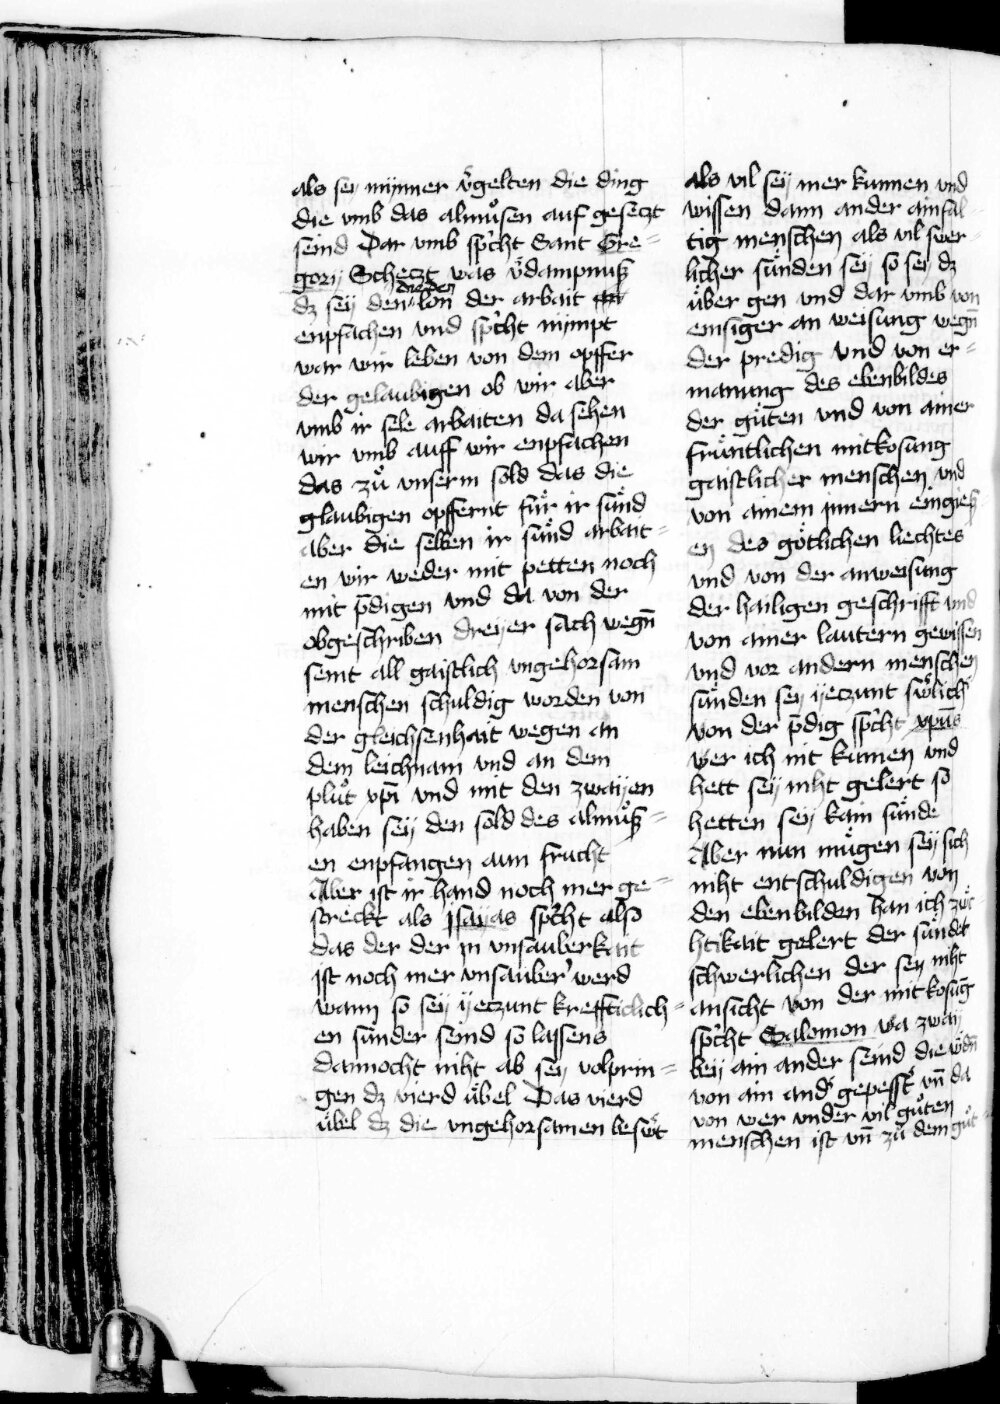 als sey mynner v̓gelten die ding
die vmb das almůsen auf geseczt
seind Dar vmb sp̓cht Sant Gre=
gorÿ Scheczt was v̓dampnuß
dz seÿ den die den lon der arbait
enpfachen vnd sp̓cht nÿmpt
war wir leben von dem opffer
der gelaubigen ob wir aber
vmb ir sele arbaiten da sehen
wir vmb auff wir enpfachen
das zů vnserm sold das die
glaubigen opffernt für ir sünd
Aber die selben ir sünd arbait=
en wir weder mit petten noch
mit p̄digen vnd da von der
obgeschriben dreÿer sach wegn̄
seint all gaistlich vngehorsam
menschen schuldig worden von
der gleichsenhait wegen an
dem leichnam vnd an dem
plůt xp̄i vnd mit den zwaÿen
haben seÿ den sold des almůß=
en enpfangen aun frucht
Aber ist ir hand noch mer ge=
streckt als Jsaÿas sp̓cht also
das der der in vnsauberkait
ist noch mer vnsauber werd
wann so seÿ ÿeczunt kreffticlich=
en sünder seind so lassens
dannocht niht ab seÿ volprin=
gen dz vierd übel Das vierd
übel dz die vngehorsamen beswͤt
als vil seÿ mer kunnen vnd
wissen dann ander ainfal=
tig menschen als vil swer=
licher sünden seÿ so seÿ dz
über gen vnd dar vmb von
emsiger an weisung wegn̄
der predig vnd von er=
manung des ebenbildes
der gůten vnd von ainer
früntlichen mitkosung
gaistlicher menschen vnd
von ainem innern eingieß
en des götlichen liechtes
vnd von der anweisung
der hailigen geschrifft vnd
von ainer lautern gewissen
vnd vor andern menschen
sünden seÿ ÿeczunt swͤlich̓
von der p̄dig sp̓cht xpūs
wer ich nit kumen vnd
hett seÿ niht gelert so
hetten seÿ kain sünde
Aber nun mügen seÿ sich
niht entschuldigen von
den ebenbilden han ich züc
htikait gelert der sündet
schwerlichen der seÿ niht
ansicht von der mitkosūg
sp̓cht Salomon wa zwaÿ
beÿ ain ander seind die wͤdn̄
von ain and̓ gepesst̓ vn̄ da
von wer vnder vil gůten
menschen ist vn̄ zů dem gůt